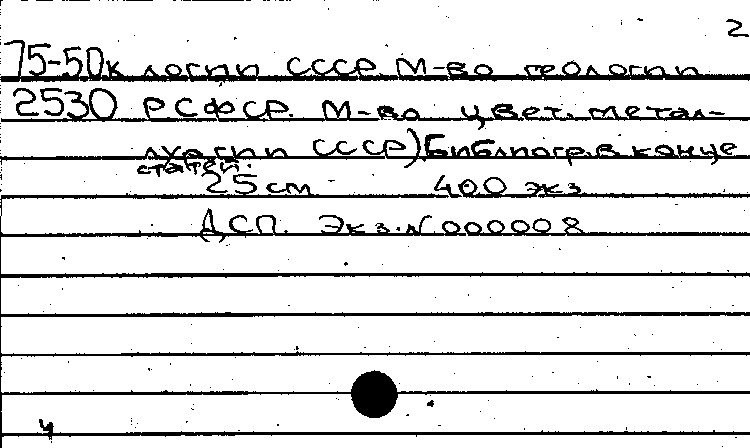 2
75-50к логии СССР. М-во геологии
2530 РСФСР. М-во цвет. метал-
лургии СССР). Библиогр. в конце
статей.
25 см 400 экз
ДСП. Экз. № 000008
4